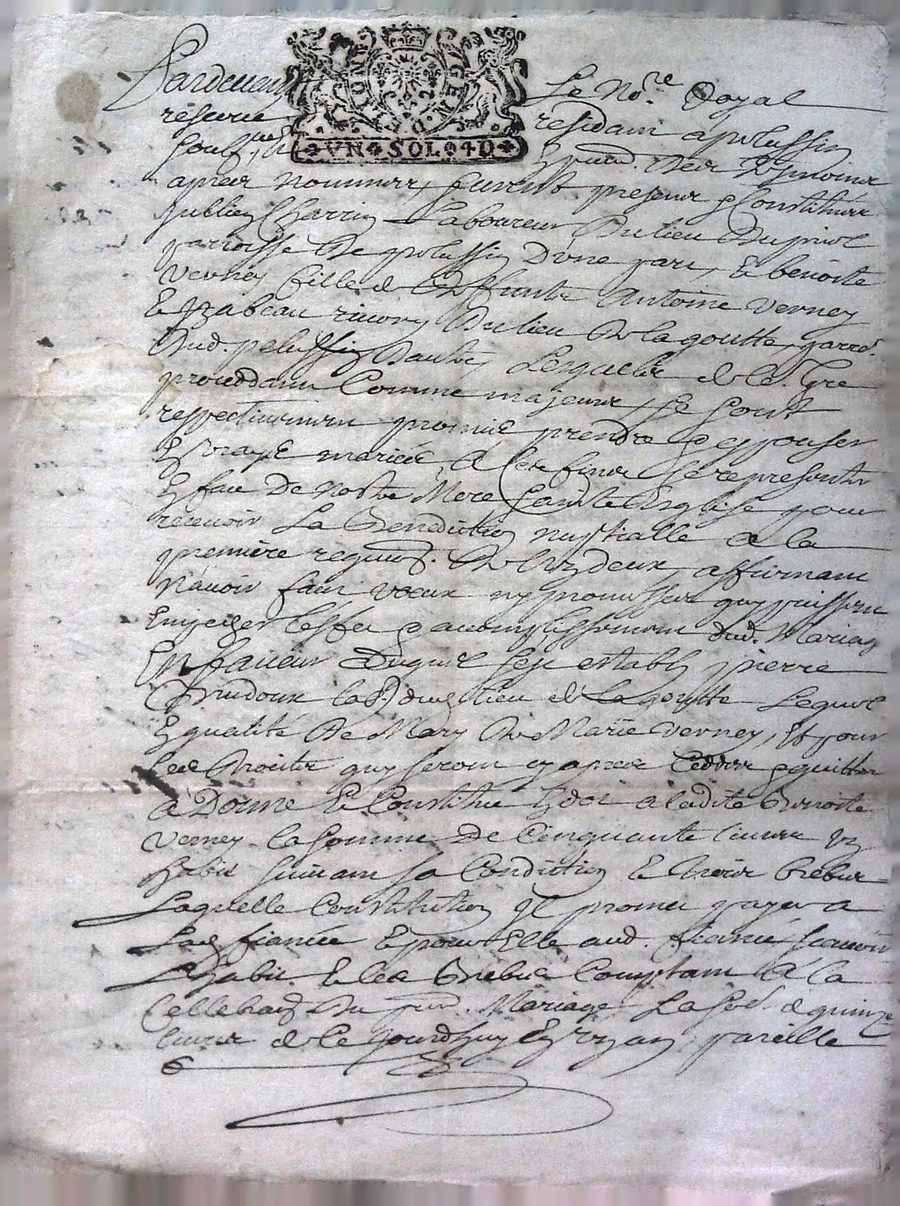 Pardevant Le No.re Royal
reservé residam a pelussin
soubz.né Et presence des tesmoins
apres nommez, furent presens & Constitués
Jullien Charrin Laboureur du lieu du priol
parroisse de pelussin d'une part, Et benoite
Verney fille de deffunts Antoine Verney
Et Izabeau rivory du lieu de la goutte, parro.
dud. pelussin d'autre, Lesquels de le gre
proceddant Comme majeurs, Se sont
respectivement promis prendre & espouser
En vraye mariée, A Ces fins se representer
En face de nostre Mere Sainte Eglise pour
recevoir La Benediction nuptialle a la
première requise. de l'un deux affirmans
N'avoir fait voeux ny promesses quy puissent
Empecher l'effet & acomplissement dud. Mariage
En faveur duquel sest establi pierre
lad. lieu de La goutte Lequel
En qualité de Mary de Marie Verney, Et pour
les droits quy seront cy apres Ceddes & quittes
a Donné Et Constitué En dot a ladite Benoite
Verney la somme de Cinquante livres un
habit suivant sa Condition Et trois brebis
Laquelle Constitution Il promet payer a
Lad. fiancée Et pour Elle aud. fiancé scavoir
L'habit Et les brebis Comptant A la
Cellebra.on du pnt. Mariage La so.e de quinze
livres de ce jourdhuy En un an, pareille
VN SOL 4D